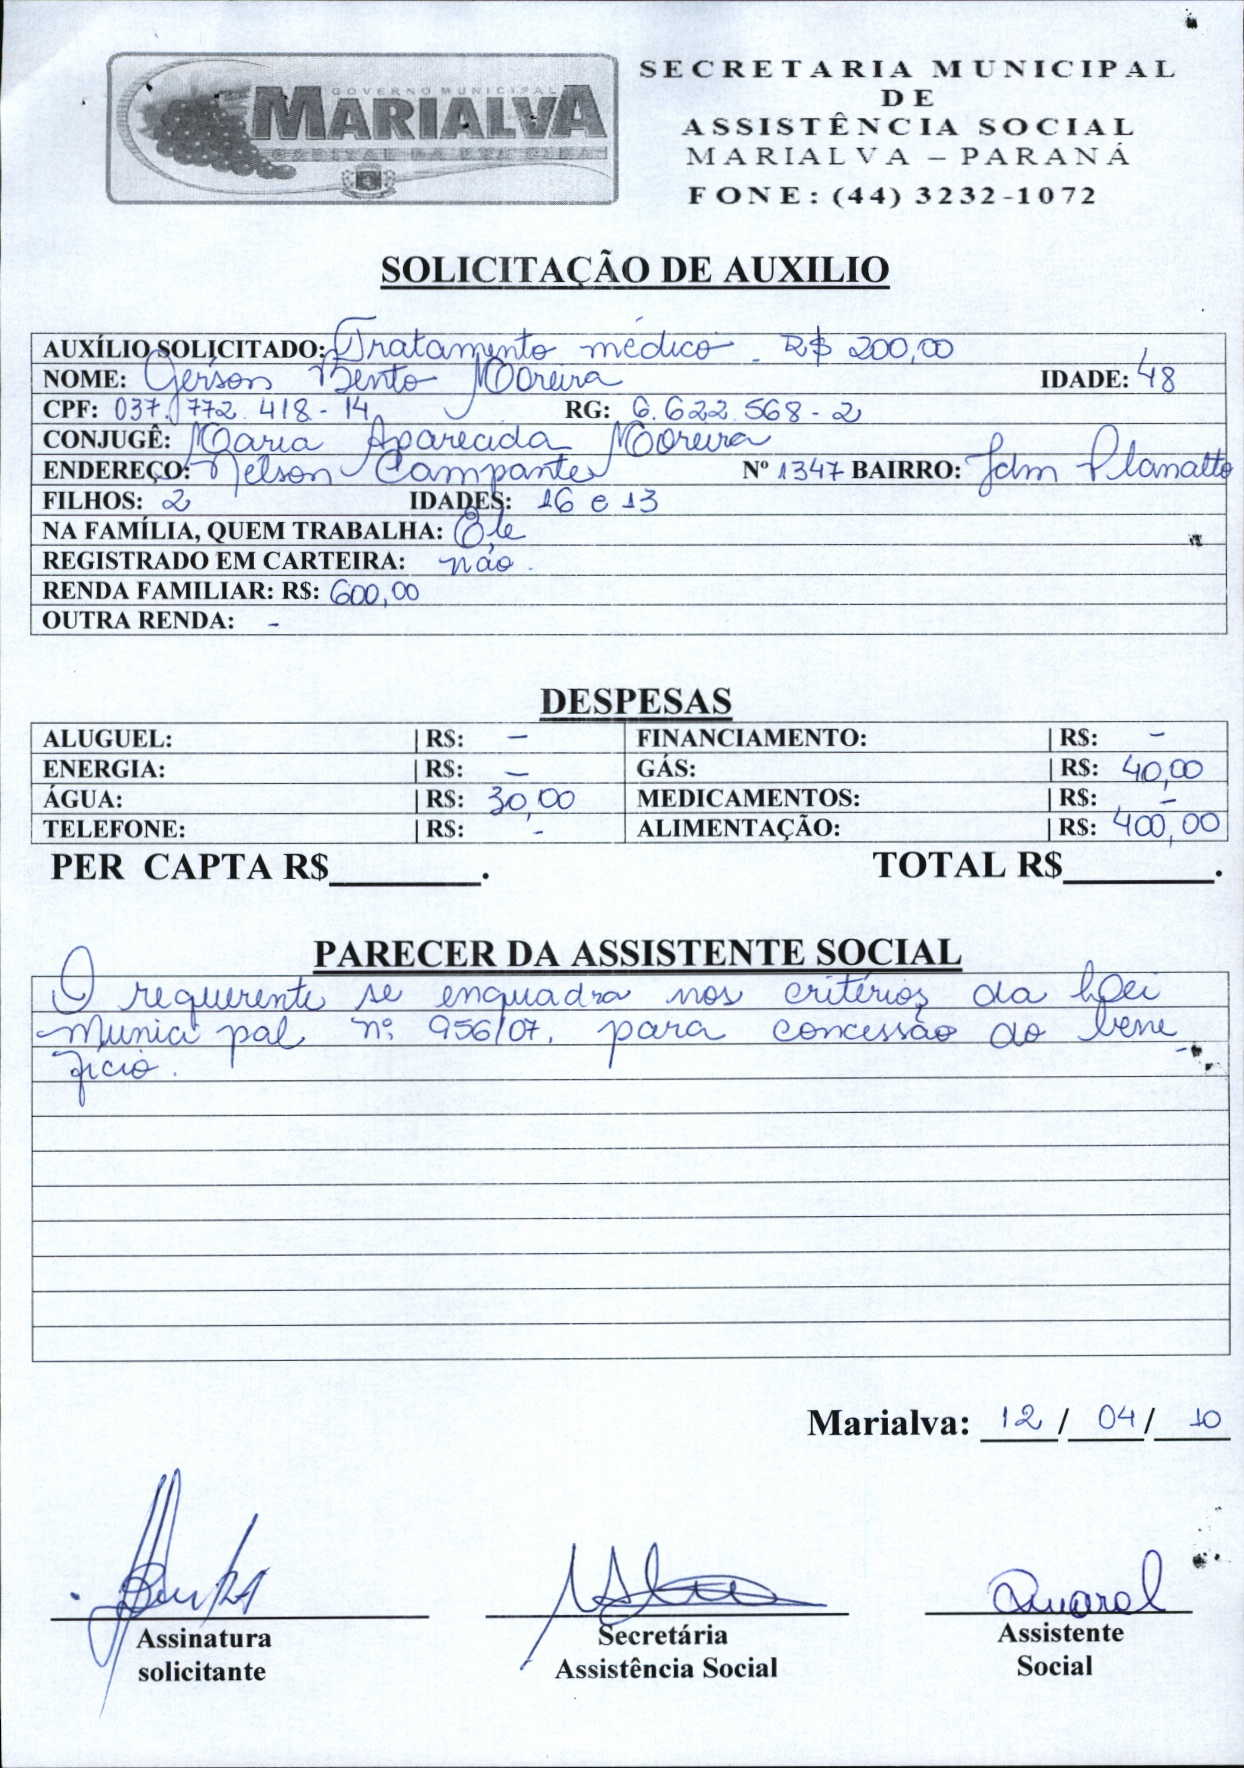 GOVERNO MUNICIPAL
MARIALVA
CAPITAL DA UVA FINA
SECRETARIA MUNICIPAL
DE
ASSISTÊNCIA SOCIAL
MARIALVA – PARANÁ
FONE: (44) 3232-1072
SOLICITAÇÃO DE AUXILIO
AUXÍLIO SOLICITADO: Tratamento médico - R$ 200,00
NOME: Gerson Bento Moreira IDADE: 48
CPF: 037.772.418-14 RG: 6.622.568-2
CONJUGÊ: Maria Aparecida Moreira
ENDEREÇO: Nelson Campante Nº 1347 BAIRRO: Jdm Planalto
FILHOS: 2 IDADES: 16 e 13
NA FAMÍLIA, QUEM TRABALHA: Ele
REGISTRADO EM CARTEIRA: não.
RENDA FAMILIAR: R$: 600,00
OUTRA RENDA: -
DESPESAS
ALUGUEL: | R$: - FINANCIAMENTO: | R$: -
ENERGIA: | R$: - GÁS: | R$: 40,00
ÁGUA: | R$: 30,00 MEDICAMENTOS: | R$: -
TELEFONE: | R$: - ALIMENTAÇÃO: | R$: 400,00
PER CAPTA R$________. TOTAL R$________.
PARECER DA ASSISTENTE SOCIAL
O requerente se enquadra nos critérios da Lei
Municipal nº 956/07, para concessão do bene-
fício.
Marialva: 12 / 04 / 10
Assinatura
solicitante
Secretária
Assistência Social
Assistente
Social